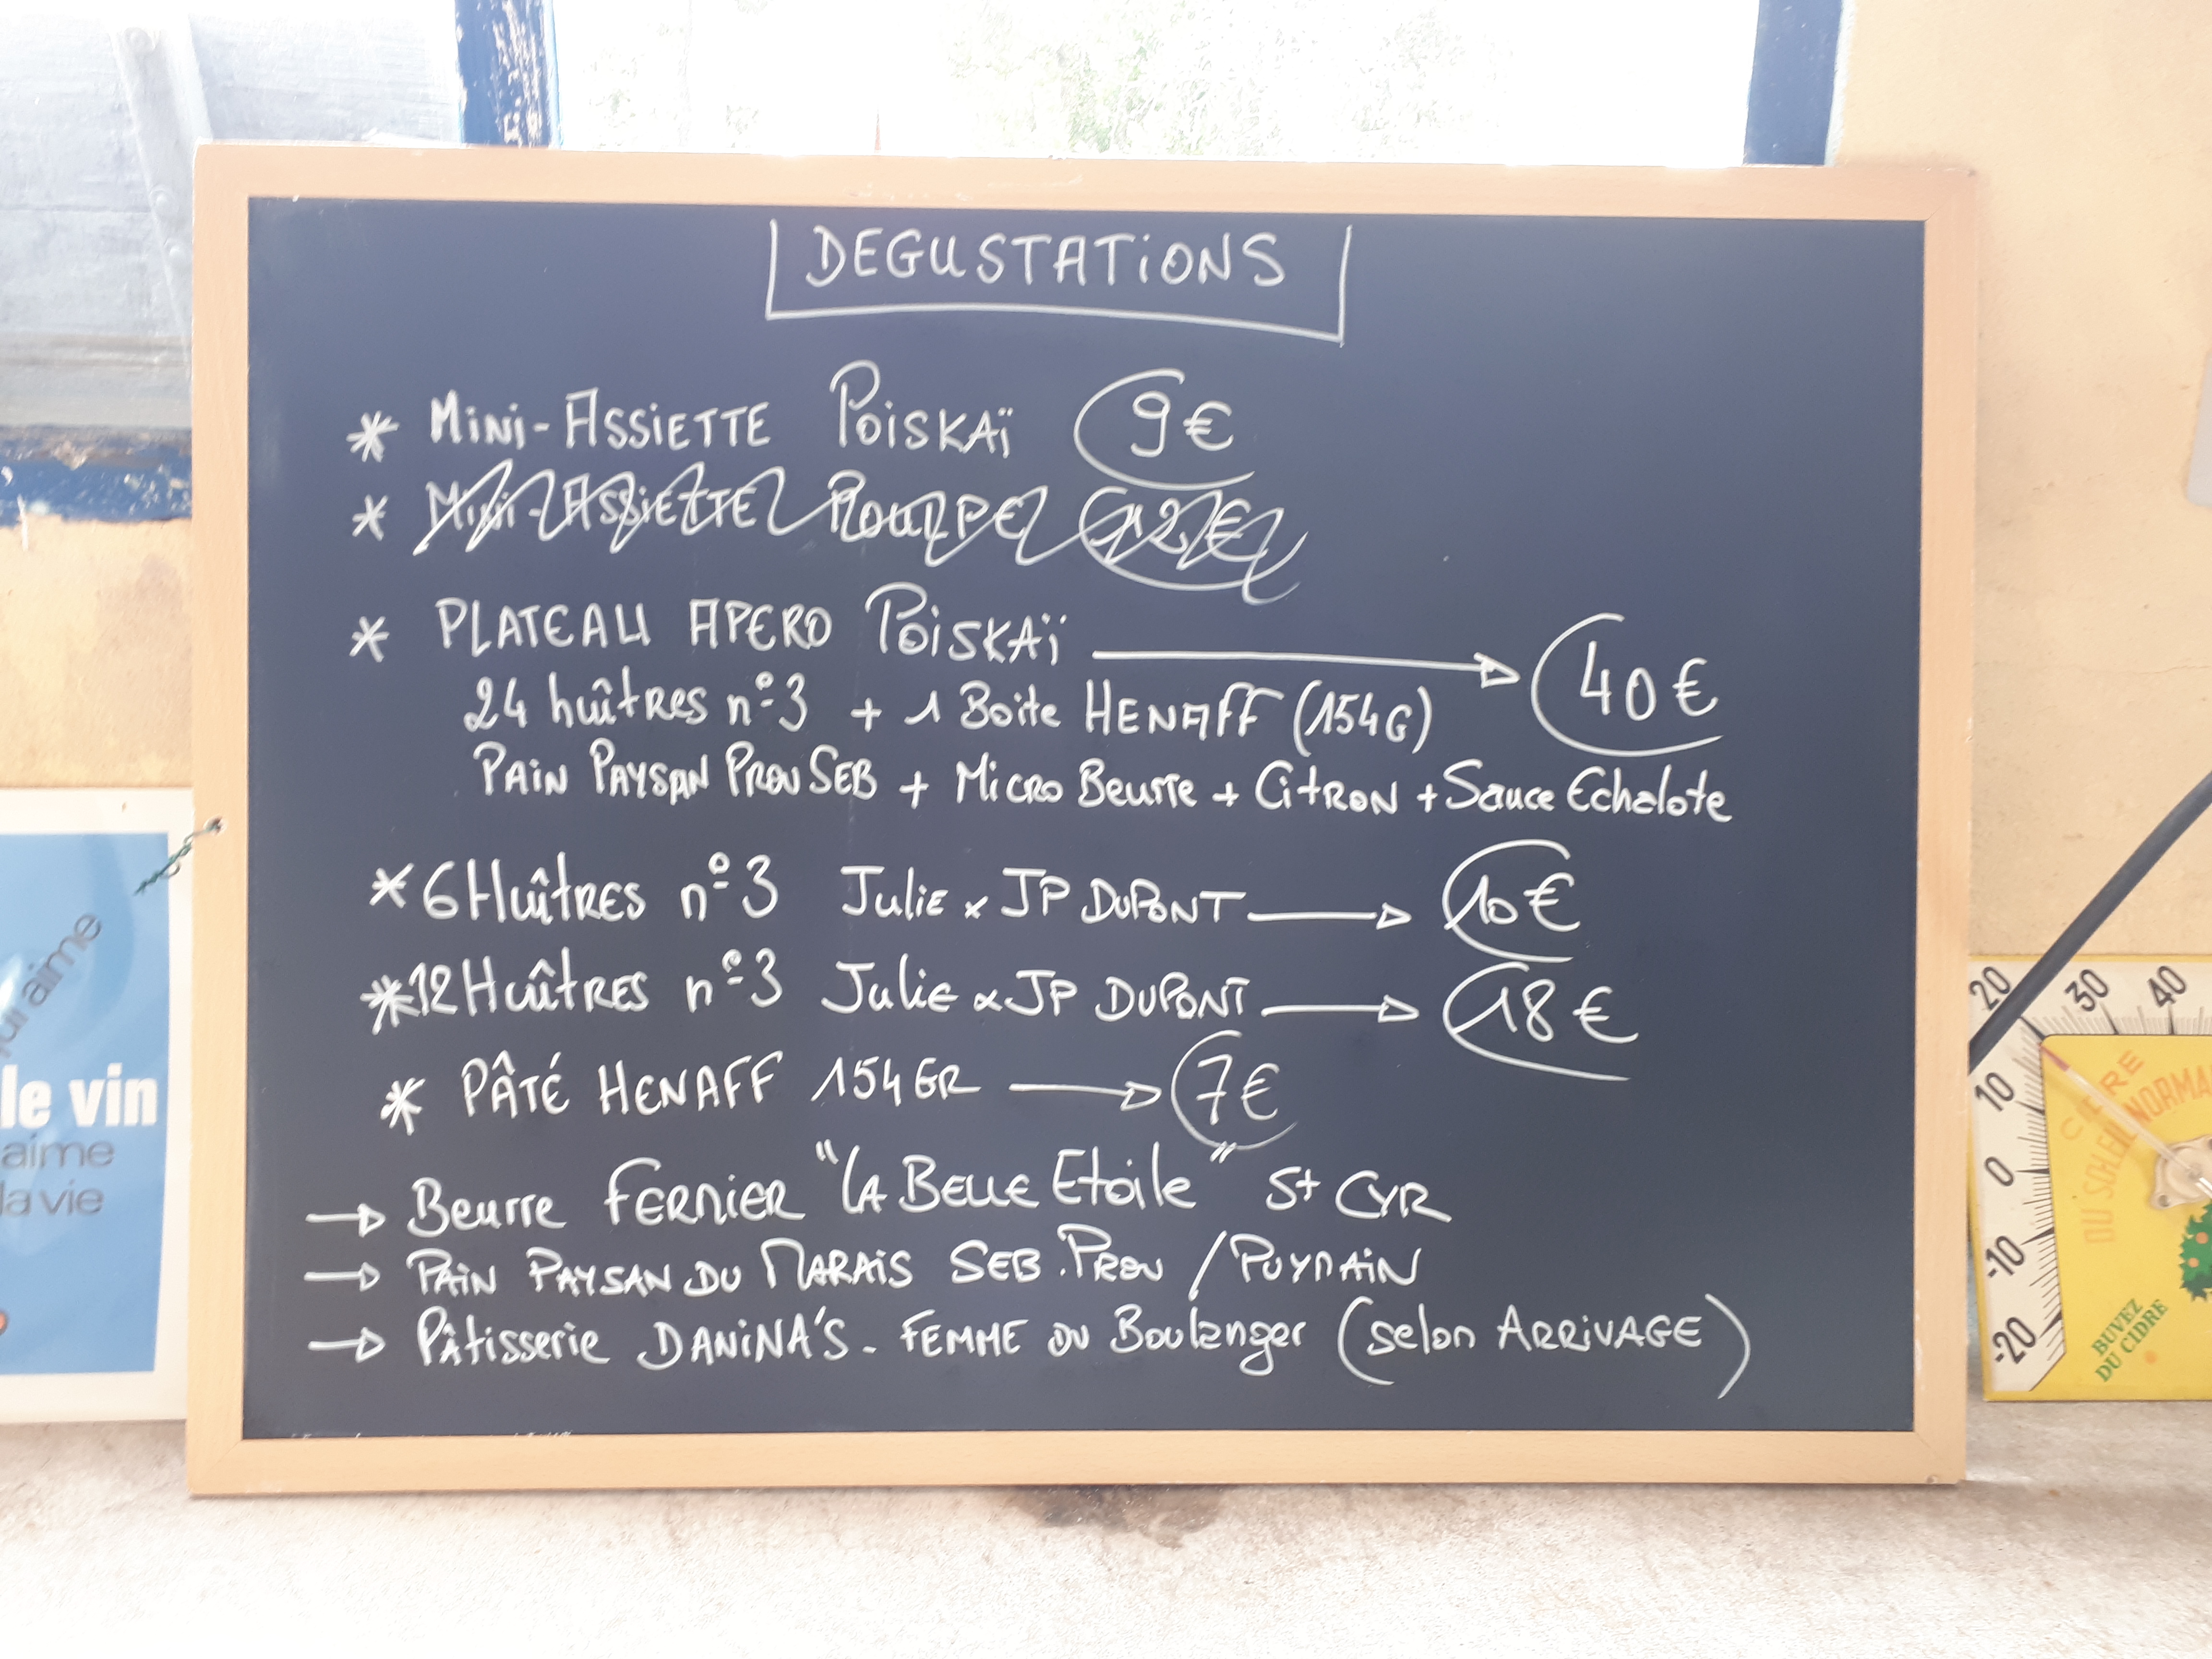 DEGUSTATiONS
* MiNi-ASSiETTE POiSKAÏ 9€
* MiNi-ASSiETTE POULPE 12€
* PLATEAU APERO POiSKAÏ → 40€
24 huîtres n°3 + 1 Boite HENAFF (154G)
PAiN PAYSAN PROUSEB + MiCRO Beurre + CitRON + Sauce Echalote
* 6 HuîtRES n°3 JuliE x JP DuPONT → 10€
* 12 HuîtRES n°3 JuliE x JP DUPONT → 18€
* PÂTÉ HENAFF 154GR → 7€
→ Beurre FERMIER "LA BELLE EtOilE" St CYR
→ PAiN PAYSAN DU MARAiS SEB.PROU / PUYMAiN
→ Pâtisserie DANiNA'S - FEMME DU Boulanger (selon ARRiVAGE)
qui aime
le vin
aime
la vie
20 30 40
10
0
-10
-20
CIDRE
DU SOLEIL NORMA
BUVEZ
DU CIDRE